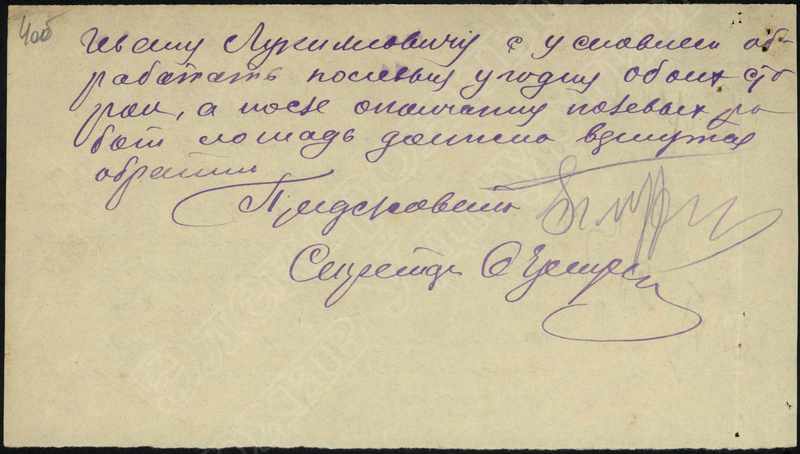 40об
Ивану Лукимовичу с условием об-
работать полевыя угодия обоих сто
рон, а после окончания полевых ра
бот лошадь должна вернутся
обратно
Председатель
Секретарь